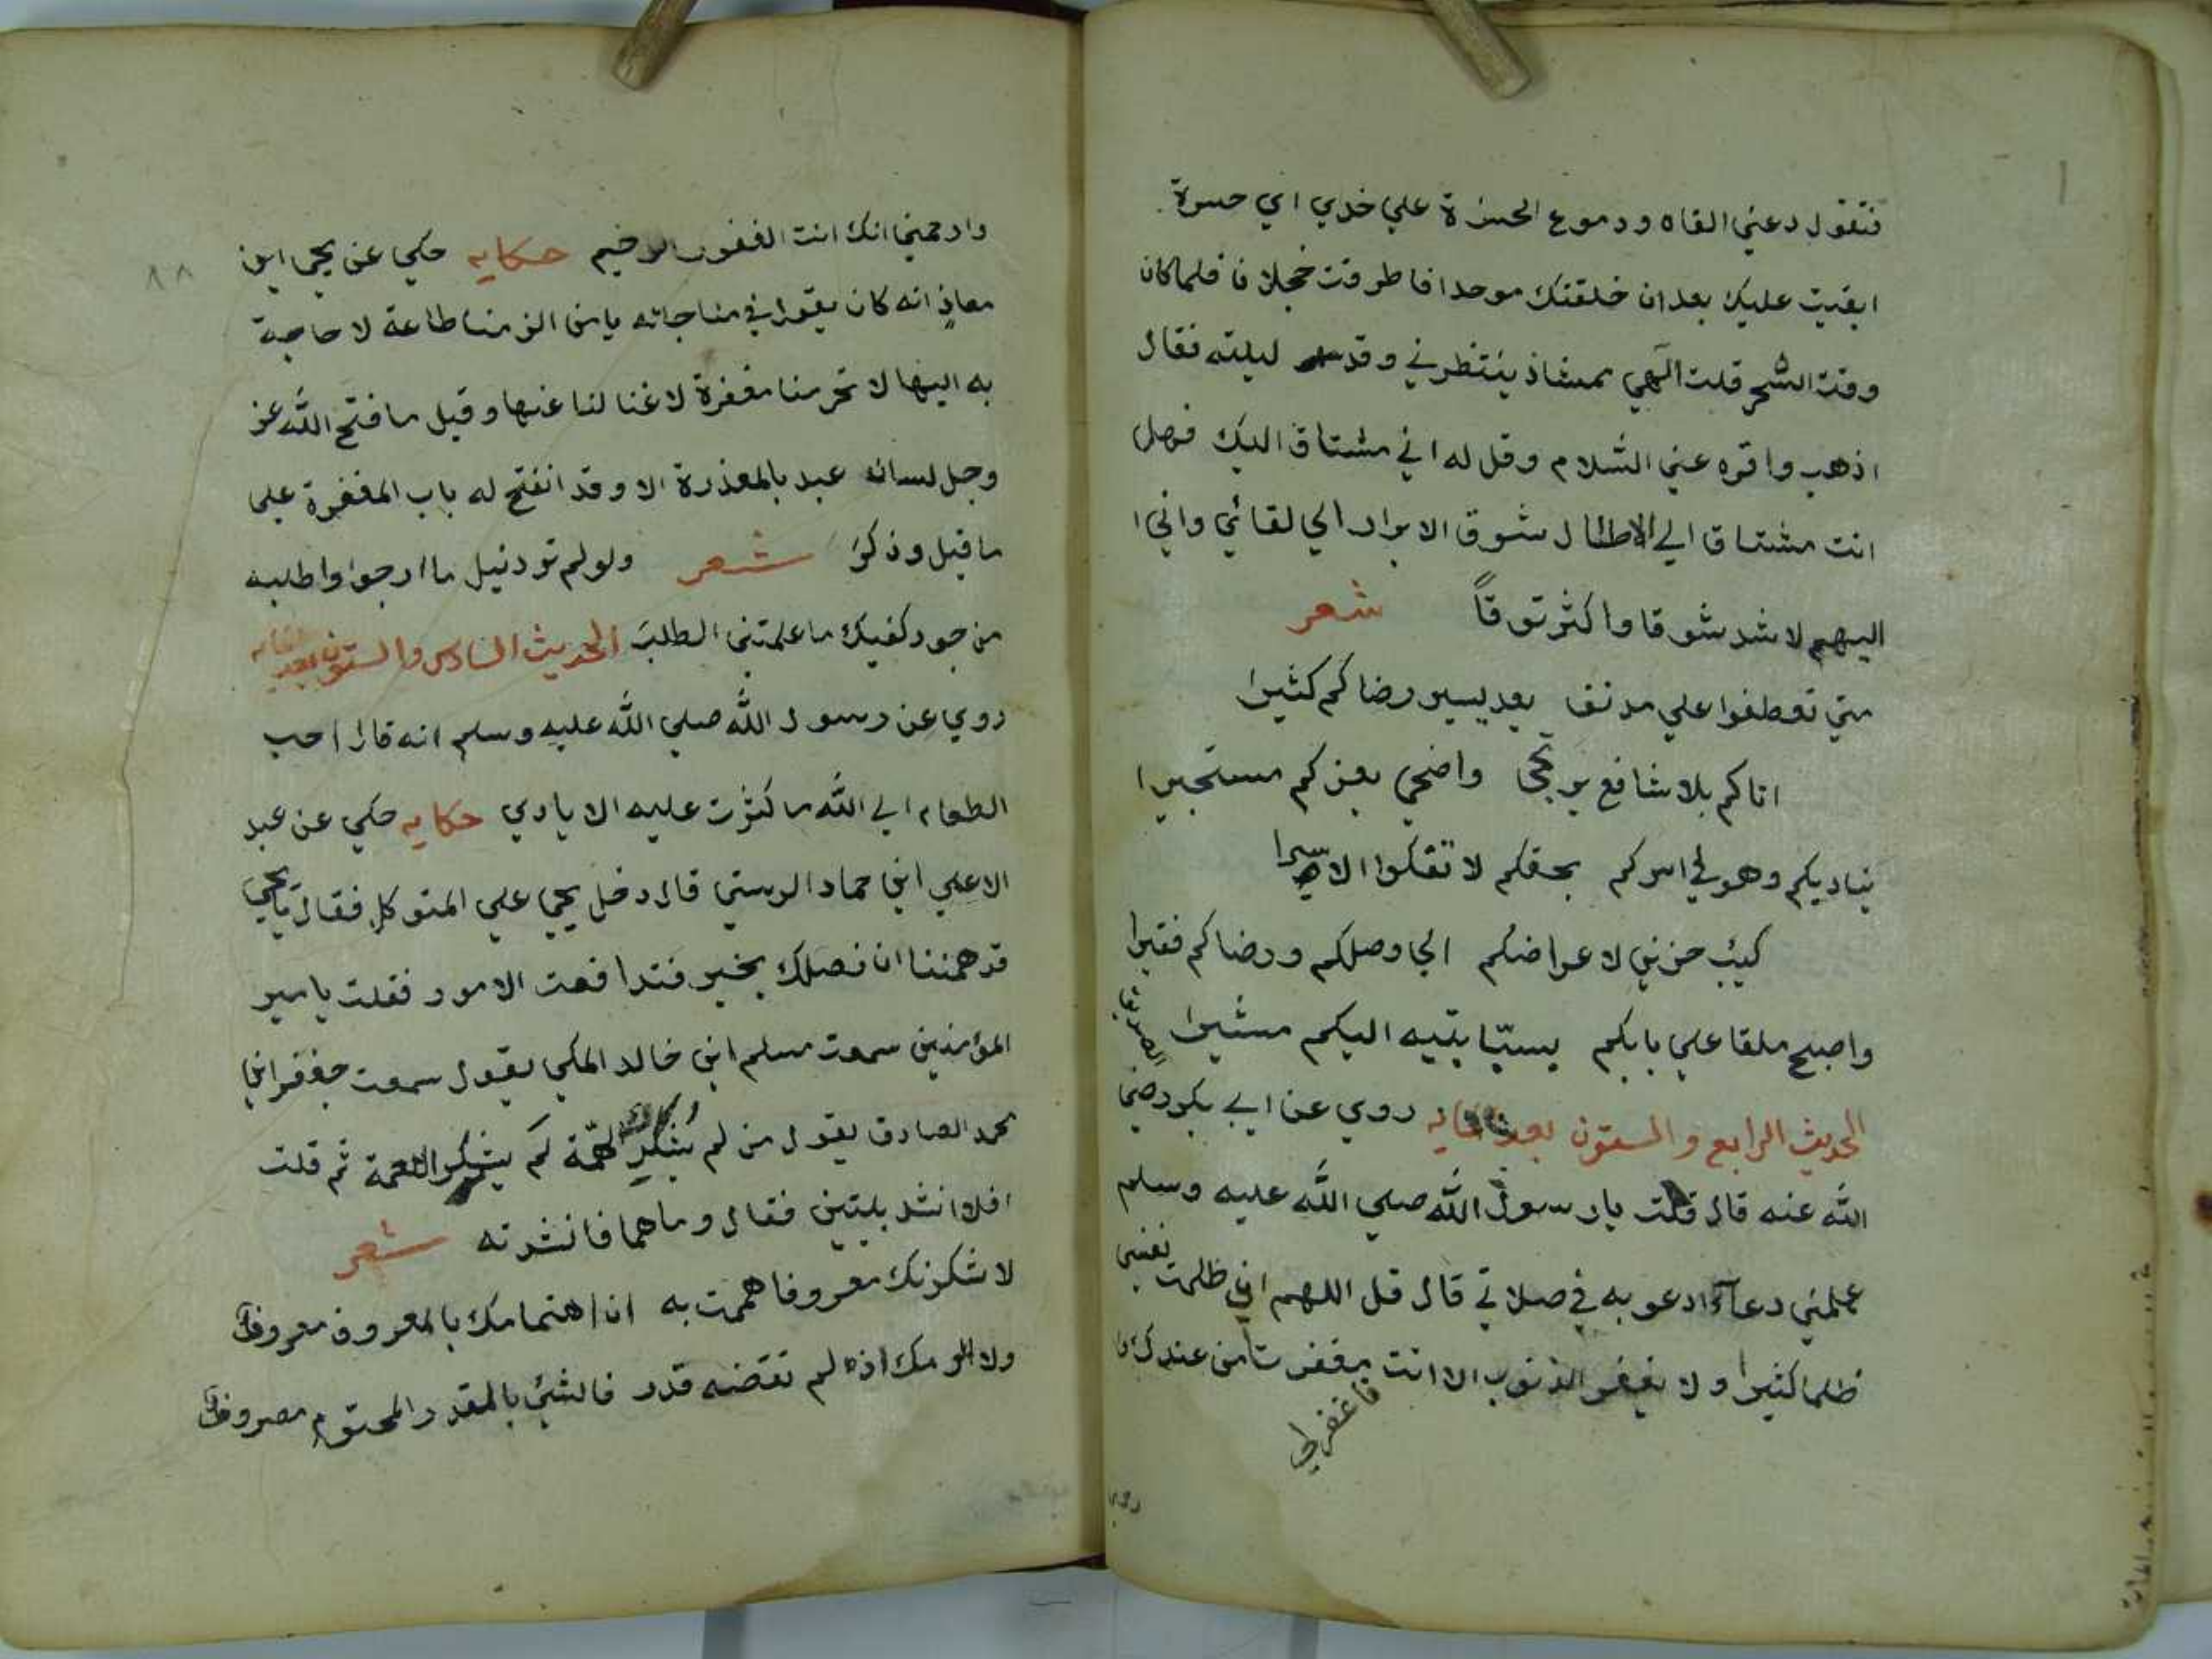 فتقول دعني القاه ودموع الحسرة علي خدي اي حسرة
ابقيت عليك بعد ان خلقتك موحدا فاطرقت خجلانا فلما كان
وقت السحر قلت الهي ممشاذ ينتظرني وقد ليلته فقال
اذهب واقره عني السلام وقل له اني مشتاق اليك فهل
انت مشتاق الي الاطال شوق الابرار الي لقائي واني ا
اليهم لاشد شوقا واكثر توقاً شعر
متي تعطفوا علي مدنف يعد يسير رضاكم كثيرا
اتاكم بلا شافع يرتجي واضحي بعزكم مستجيرا
يناديكم وهو في اسركم بحقكم لا تفكوا الاسيرا
كيئب حزين لاعراضكم الي وصلكم ورضاكم فقيرا
واصبح ملقا علي بابكم يسبّا بتيه اليكم مشيرا
الحديث الرابع والستون بعد المايه روي عن ابي بكر رضي
الصديق
الله عنه قال قلت يا رسول الله صلي الله عليه وسلم
علمني دعآءً ادعو به في صلاتي قال قل اللهم اني ظلمت نفسي
ظلما كثيرا ولا يغفر الذنوب الا انت مغفرتا من عندك وا
فاغفرلي
روي
٨٨
وارحمني انك انت الغفور الرحيم حكايه حكي عن يحي ابن
معاذ انه كان يقول في مناجاته يا من الزمنا طاعة لا حاجة
به اليها لا تحرمنا مغفرة لا غنا لنا عنها وقيل ما فتح الله عز
وجل لسان عبد بالمعذرة الا وقد انفتح له باب المغفرة علي
ما قيل وذكر شعر ولو لم تود نيل ما ارجوا واطلبه
من جود كفيك ما علمتني الطلب الحديث السادس والستون بعد المايه
روي عن رسول الله صلي الله عليه وسلم انه قال احب
الطعام الي الله ما كثرت عليه الايادي حكايه حكي عن عبد
الاعلي ابن حماد الرستي قال دخل يحي علي المتوكل فقال يا يحي
قد هممنا ان نصلك بخير فتدافعت الامور فقلت يا مير
المؤمنين سمعت مسلم ابن خالد المكي يقول سمعت جعفر ابن
محمد الصادق يقول من لم يشكر الهمّة لم يشكر النعمة ثم قلت
افلا انشد بيتين فقال وما هما فانشدته شعر
لاشكرنك معروفا هممت به ان اهتمامك بالمعروف معروف
ولا الومك اذ لم تقضه قدر فالشئ بالقدر المحتوم مصروف